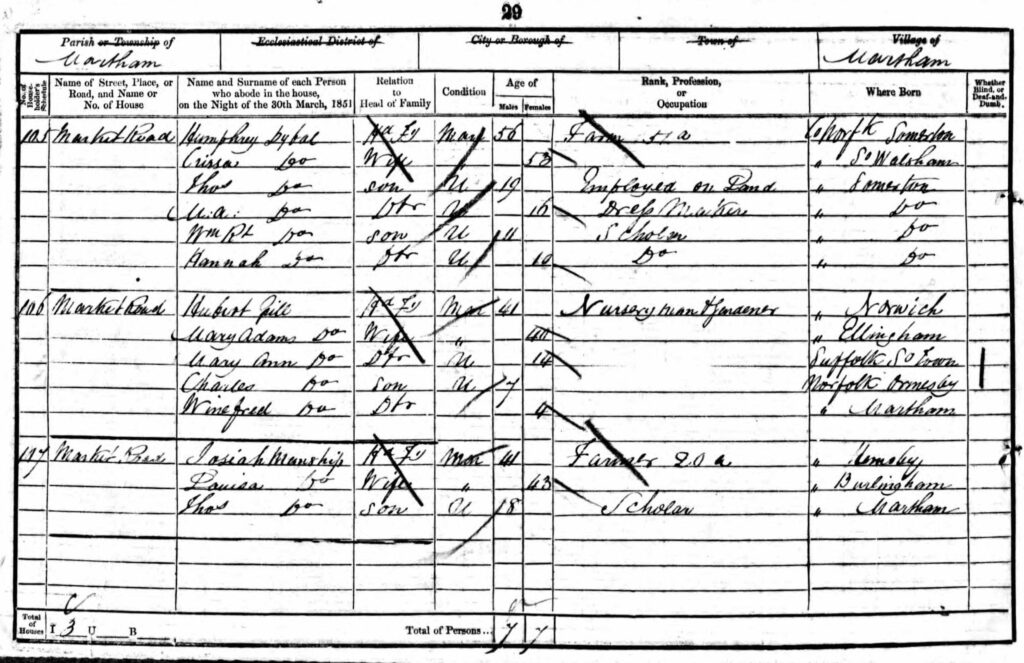 29
Parish or Township of Ecclesiastical District of City or Borough of Town of Village of
Martham Martham
No. of House-holder's Schedule Name of Street, Place, or Road, and Name or No. of House Name and Surname of each Person who abode in the house, on the Night of the 30th March, 1851 Relation to Head of Family Condition Age of Males Females Rank, Profession, or Occupation Where Born Whether Blind, or Deaf-and-Dumb.
105 Market Road Humphrey Dybal Hd Fy Mar 56 Farm 51 a Norfk Somerton
Do Wife 53 " So Walsham
Thos Do son U 19 Employed on Land " Somerton
M.a. Do Dtr U 16 Dress Maker " Do
Wm Rt Do son U 11 Scholar " Do
Hannah Do Dtr U 10 Do " Do
106 Market Road Hubert Gill Hd Fy Mar 41 Nurseryman & Gardener " Norwich
Mary Adams Do Wife " 40 " Ellingham
Mary Ann Do Dtr U 14 Suffolk So Town
Charles Do son U 7 Norfolk Ormesby
Winefred Do Dtr 4 " Martham
107 Market Road Josiah Manship Hd Fy Mar 41 Farmer 20 a " Hemsby
Louisa Do Wife " 43 " Burlingham
Thos Do son U 8 Scholar " Martham
Total of Houses I 3 U B Total of Persons... 7 7